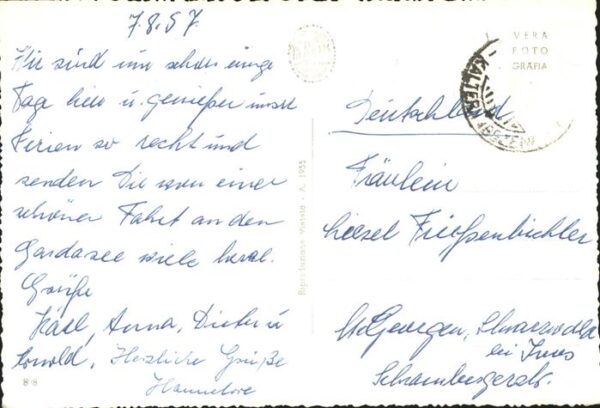 7.8.57
Wir sind nun schon einige
Tage hier u. genießen unsere
Ferien so recht und
senden Dir von einer
schönen Fahrt an den
Gardasee viele herzl.
Grüße
Karl, Anna, Dieter u
Herzliche Grüße
Hannelore
88
Riproduzione vietata - A. 1955
VERA
FOTO
GRAFIA
KALTERN
Deutschland
Fräulein
Liesel
St. Georgen, Schwarzwald
bei
Schrambergerstr.